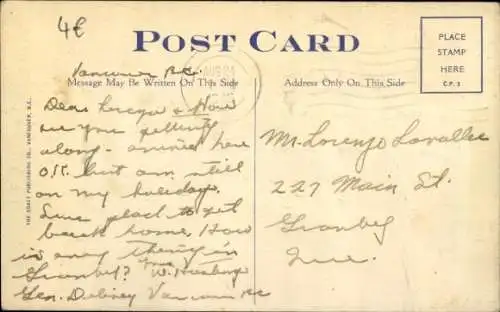 4€
POST CARD
PLACE
STAMP
HERE
C.P. 3
AUG 24
Vancouver B.C.
Message May Be Written On This Side
Address Only On This Side
THE COAST PUBLISHING CO., VANCOUVER, B.C.
Dear Lorenzo & How
are you getting
along - arrived here
O.K. but am still
on my holidays.
Sure glad to get
back home. How
is every thing in
Granby? W.
Gen. Delivery Vancouver BC
Mr. Lorenzo Lavallee
227 Main St.
Granby
Que.